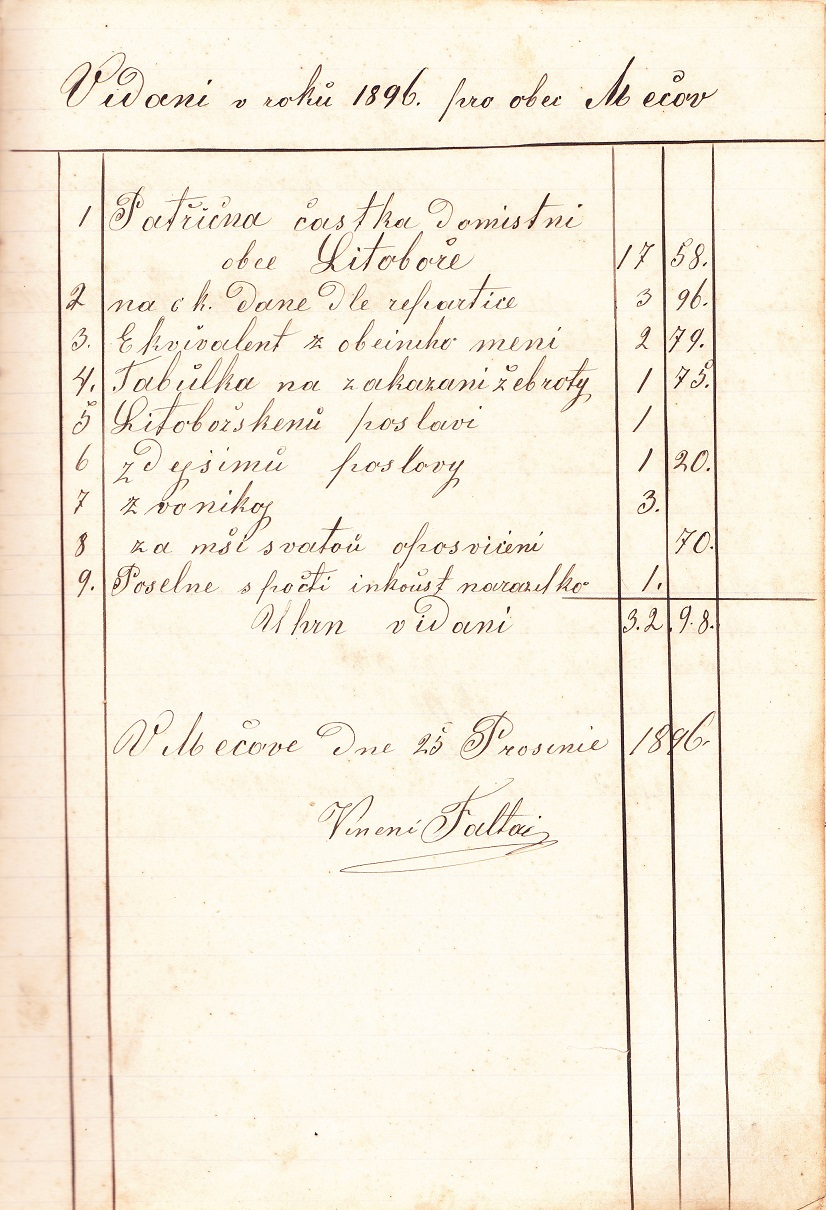 Vidani v roků 1896. pro obec Mečov
1 Patřična častka domistni
obce Litoboře 17 58.
2 na ck. Dane Dle repartice 3 96.
3. Ekvivalent z obecniho meni 2 79.
4. Tabulka na zakazani žebroty 1 75.
5 Litobořskemů poslavi 1
6 zdejšimů poslovy 1 20.
7 zvonikoj 3.
8 za mši svatoů oposviceni 70.
9. Poselne spočti inkoust 1.
Uhrn vidani 3.2. 9.8.
V Mečove Dne 25 Prosince 1896.
Faltai